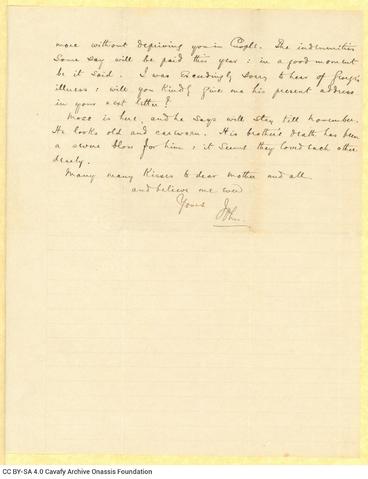 more without depriving you in C/ople. The indemnities
some say will be paid this year : in a good moment
be it said. I was exceedingly sorry to hear of George's
illness ; will you kindly give me his present address
in your next letter?
Moco is here, and he says will stay till November.
He looks old and careworn. His brother's death has been
a severe blow for him ; it seems they loved each other
dearly.
Many many kisses to dear mother and all
and believe me ever
Yours
John.
CC BY-SA 4.0 Cavafy Archive Onassis Foundation